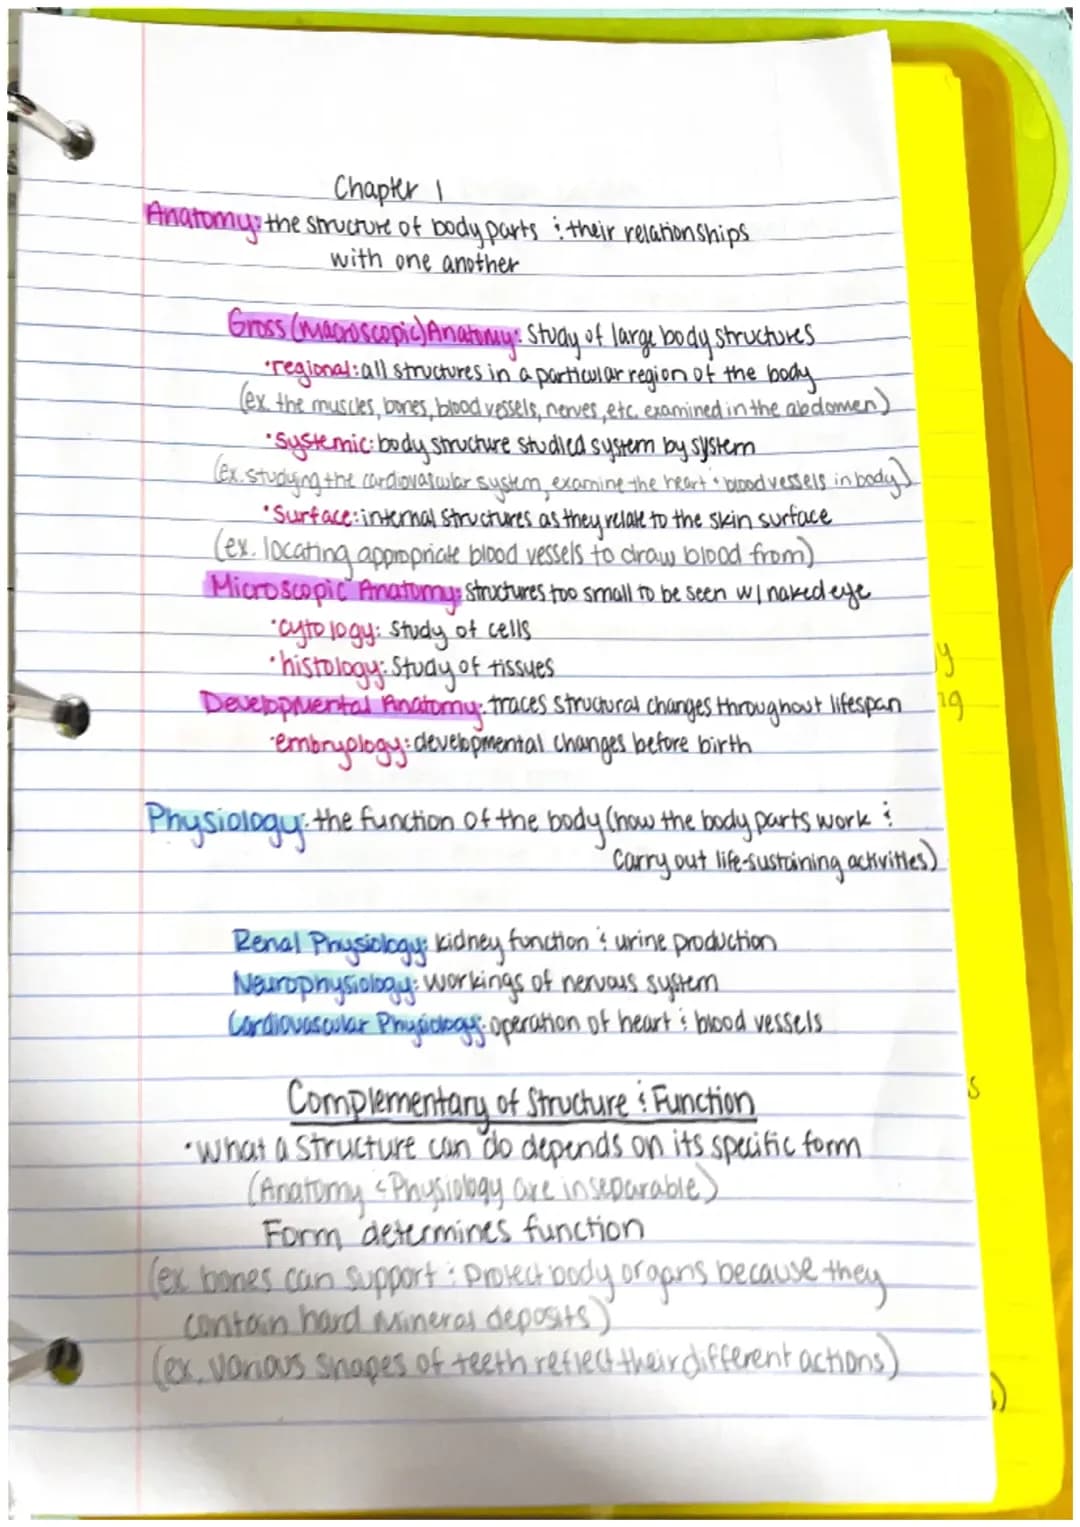 Chapter 1
Anatomy: the structure of body parts & their relationships
with one another
Gross (macroscopic) Anatomy: Study of large body structures
•regional: all structures in a particular region of the body
(ex. the muscles, bones, blood vessels, nerves, etc. examined in the abdomen)
•Systemic: body structure studied system by system
(ex. studying the cardiovascular system, examine the heart & blood vessels in body)
•Surface: internal structures as they relate to the skin surface
(ex. locating appropriate blood vessels to draw blood from)
Microscopic Anatomy: structures too small to be seen w/ naked eye
•cytology: Study of cells
•histology: Study of tissues
Developmental Anatomy: traces structural changes throughout lifespan
•embryology: developmental changes before birth
Physiology: the function of the body (how the body parts work &
carry out life-sustaining activities)
Renal Physiology: kidney function & urine production
Neurophysiology: workings of nervous system
Cardiovascular Physiology: operation of heart & blood vessels
Complementary of Structure & Function
•what a structure can do depends on its specific form
(Anatomy & Physiology are inseparable)
Form determines function
(ex. bones can support & protect body organs because they
contain hard mineral deposits)
(ex. various shapes of teeth reflect their different actions)